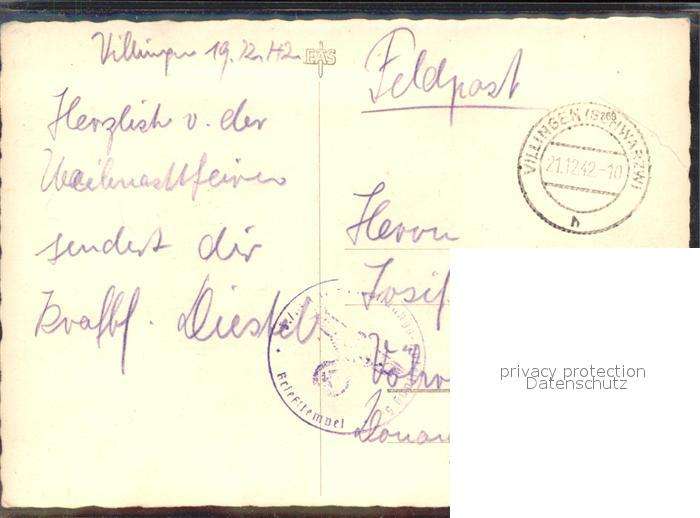 Villingen 19.12.42
EAS
Feldpost
Herzlich v. der
Weihnachtsfeier
sendet dir
Krafft. Diestel
VILLINGEN (SCHWARZW)
21.12.42-10
h
Herrn
Josif
Vöhre
Donau
Briefstempel
privacy protection
Datenschutz